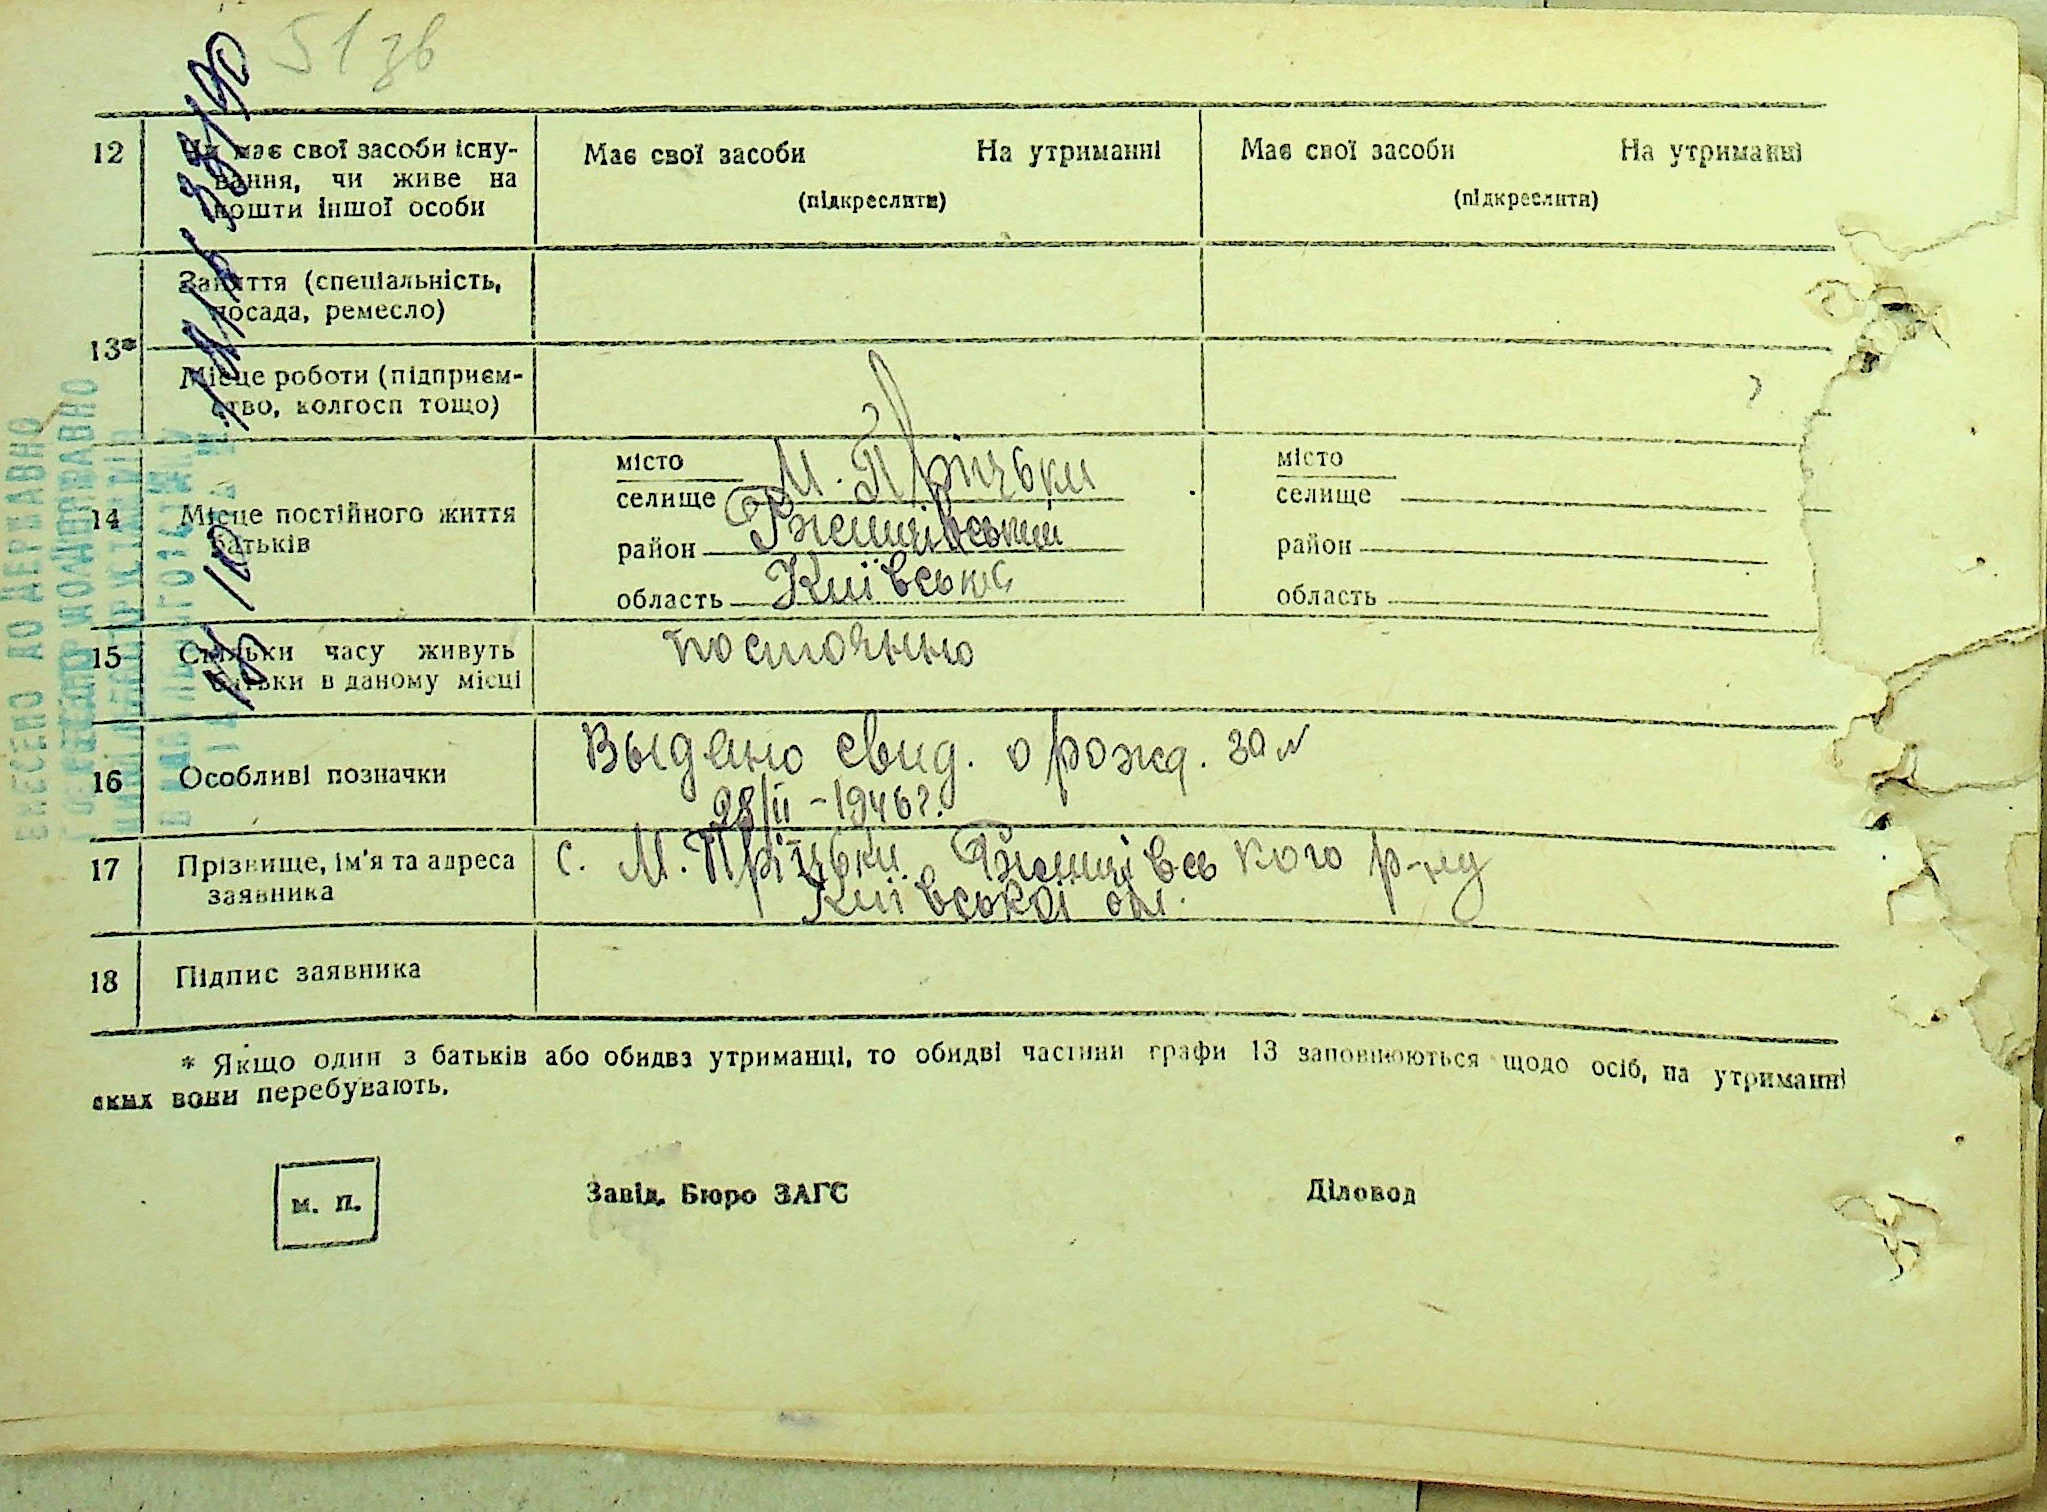 51 зв
12 Чи має свої засоби існу-
вання, чи живе на
кошти іншої особи
Має свої засоби На утриманні
(підкреслити)
Має свої засоби На утриманні
(підкреслити)
13*
Заняття (спеціальність,
посада, ремесло)
Місце роботи (підприєм-
ство, колгосп тощо)
14 Місце постійного життя
батьків
місто
селище М. Пріцьки
район Ржищівський
область Київська
місто
селище
район
область
15 Скільки часу живуть
батьки в даному місці
постоянно
16 Особливі позначки
Выдано свид. о рожд. за №
28/II - 1946 г.
17 Прізвище, ім'я та адреса
заявника
с. М. Пріцьки Ржищівського р-ну
Київської обл.
18 Підпис заявника
* Якщо один з батьків або обидва утриманці, то обидві частини графи 13 заповнюються щодо осіб, на утриманні
яких вони перебувають.
м. п.
Завід. Бюро ЗАГС
Діловод
ВНЕСЕНО ДО ДЕРЖАВНО